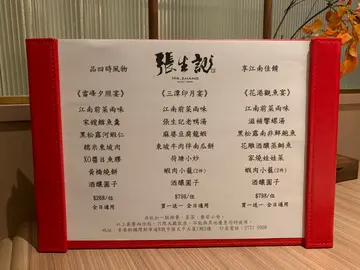 品四時風物
張生記
MR. ZHANG
享江南佳餚
《雷峰夕照宴》
江南前菜兩味
宋嫂鱔魚羹
黑松露河蝦仁
糯米東坡肉
XO醬豆魚膠
黃橋燒餅
酒釀圓子
$268/位
全日適用
《三潭印月宴》
江南前菜兩味
張生記老鴨湯
麻婆豆腐龍蝦
東坡牛肉伴南瓜餅
荷塘小炒
蝦肉小籠(2件)
酒釀圓子
$798/位
買一送一 全日適用
《花港觀魚宴》
江南前菜兩味
滋補響螺湯
黑松露南非鮮鮑魚
花雕酒釀蒸鮰魚
家燒娃娃菜
蝦肉小籠(2件)
酒釀圓子
$798/位
買一送一 全日適用